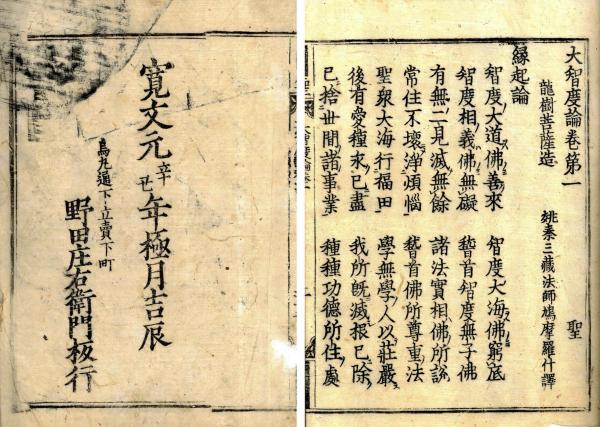 大智度論卷第一
龍樹菩薩造 姚秦三藏法師鳩摩羅什譯 聖
緣起論
智度大道佛善來 智度大海佛窮底
智度相義佛無礙 稽首智度無子佛
有無二見滅無餘 諸法實相佛所說
常住不壞淨煩惱 稽首佛所尊重法
聖衆大海行福田 學無學人以莊嚴
後有愛種求已盡 我所既滅根已除
已捨世間諸事業 種種功德所住處
寬文元辛丑年極月吉辰
烏丸通下立賣下町
野田庄右衛門板行